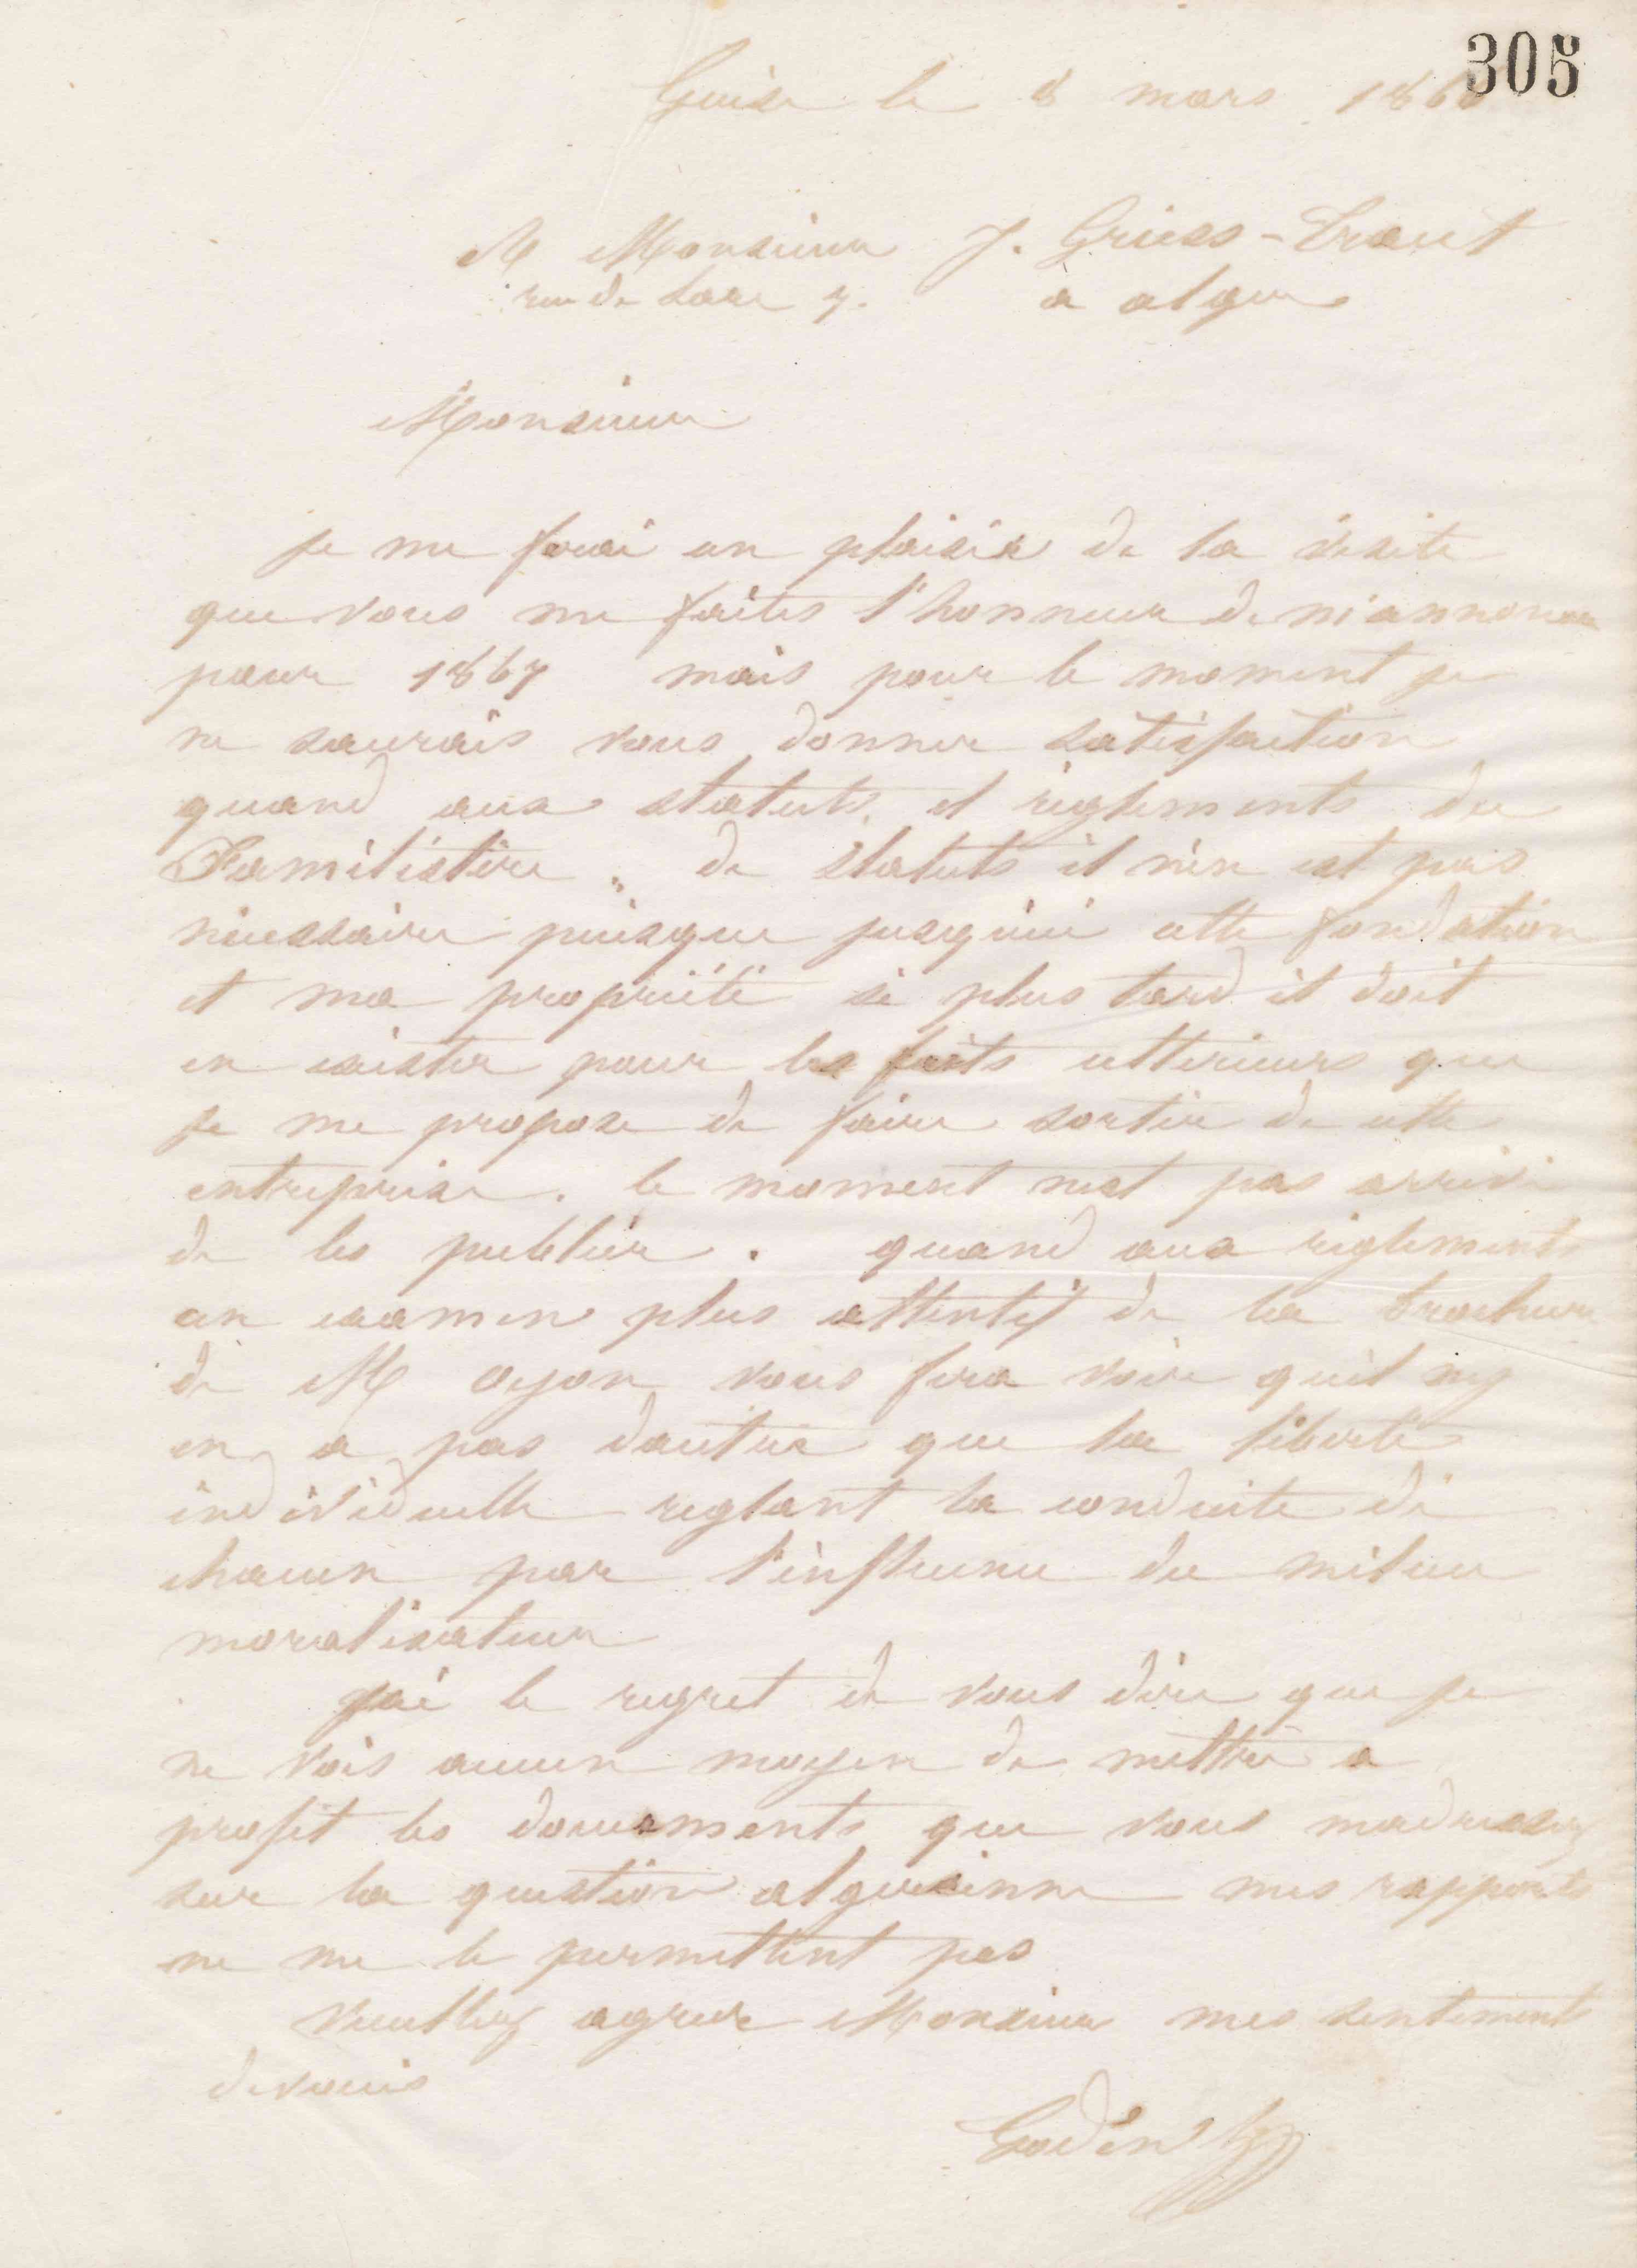 305
Guise le 8 mars 1866
A Monsieur J. Griess-Traut
rue de 7. à alger
Monsieur
je me ferai un plaisir de la visite
que vous me faites l'honneur de m'annoncer
pour 1867 mais pour le moment je
ne saurais vous donner satisfaction
quand aux statuts et règlements du
Familistère, de statuts il n'en est pas
nécessaire puisque jusqu'ici cette fondation
et ma propriété si plus tard il doit
en exister pour les faits ultérieurs que
je me propose de faire sortir de cette
entreprise. le moment nest pas arrivé
de les publier. quand aux règlements
un examen plus attentif de la brochure
de M oyon vous fera voir quil ny
en a pas dautre que la liberté
individuelle reglant la conduite de
chacun par l'influence du milieu
moralisateur
jai le regret de vous dire que je
ne vois aucun moyen de mettre a
profit les documents que vous madressez
sur la question algerienne mes rapports
ne me le permettent pas
veuillez agreer Monsieur mes sentiments
devoués
Godin